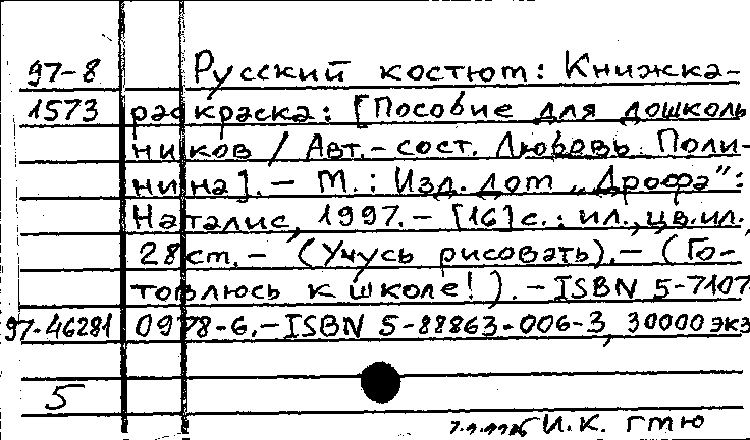 97-8 Русский костюм: Книжка-
1573 раскраска: [Пособие для дошколь
ников / Авт.-сост. Любовь Поли-
нина]. - М.: Изд. дом „Дрофа":
Наталис, 1997. - [16] с.: ил., цв. ил.,
28 см. - (Учусь рисовать). - (Го-
товлюсь к школе!). - ISBN 5-7107
97-46281 0978-6. - ISBN 5-88863-006-3, 30000 экз
5
И.К. гмю